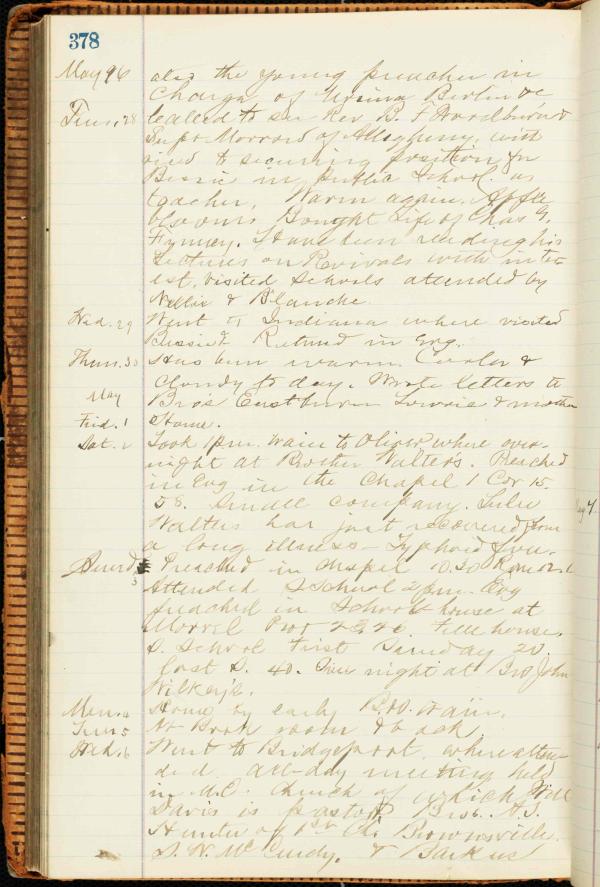 378
May 96 also the young preacher in
Charge of
Tues. 28 to see Rev. B. F. Woodburn &
Supt Morrow of Allegheny, with
view to securing position for
Bessie in public School as
teacher. Warm again. Apple
blossoms. Bought Life of Chas G.
Finney. Have been reading his
Lectures on Revivals with inter-
est. Visited Schools attended by
Nellie & Blanche.
Wed. 29 Went to Indiana where visited
Bessie & Returnd in Evg.
Thurs. 30 Has been warm. Cooler &
Cloudy to day. Wrote letters to
May Bro's Eastburn Lowrie & mother
Frid. 1 Home.
Sat. 2 Took 1 pm. train to Oliver where over-
night at Brother Walter's. Preached
in Evg in the Chapel 1 Cor 15.
58. Small company.
Walters has just recovered from
a long illness - Typhoid fever.
Sund 3 Preached in chapel 10.30 Rom 12.1
Attended S School 2 pm. Evg
preached in School house at
Morrel Full house.
S. School First Sunday 20.
Last S. 40. Over night at Bro John
Wilkey's.
Mon. 4 Home by early B&O. train.
Tues 5 At Book room &
Wed. 6 Went to Bridgeport, where atten-
ded all-day meeting held
in M.E. Church of which Will
Davis is pastor. Bros. A.J.
Hunter of 1st Ch. Brownsville
S. W. McCurdy, & Barkus
May 7.